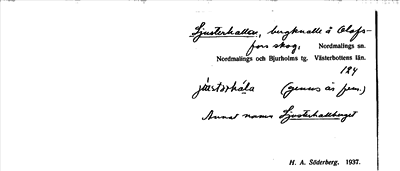 Ljusterkallen, bergknalle å Olofs-
fors skog, Nordmalings sn.
Nordmalings och Bjurholms tg. Västerbottens län.
124
(genus är fem.)
Annat namn Ljusterkallberget
H. A. Söderberg, 1937.